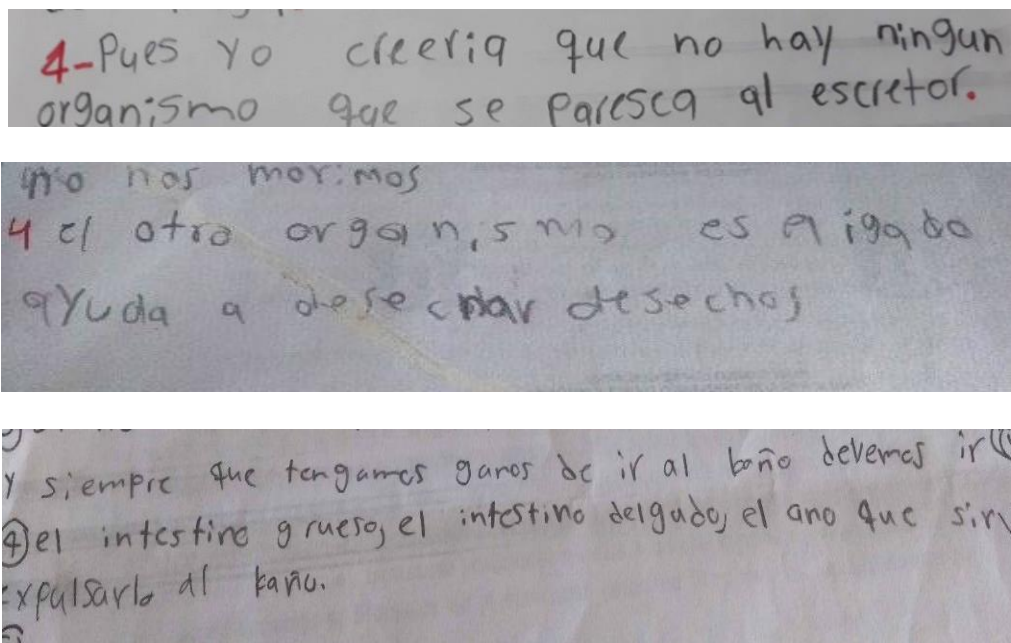 4-Pues Yo creeria que no hay ningun
organismo que se paresca al escretor.
no nos morimos
4 el otro organismo es el igado
ayuda a desechar desechos
y siempre que tengamos ganas de ir al baño devemos ir
④ el intestino grueso, el intestino delgado, el ano que sirv
expulsarlo al baño.